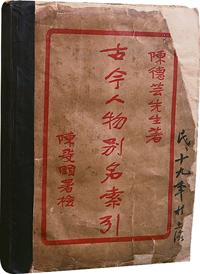 陳德芸先生著
古今人物别名索引
陳斐頤署檢
民十九年